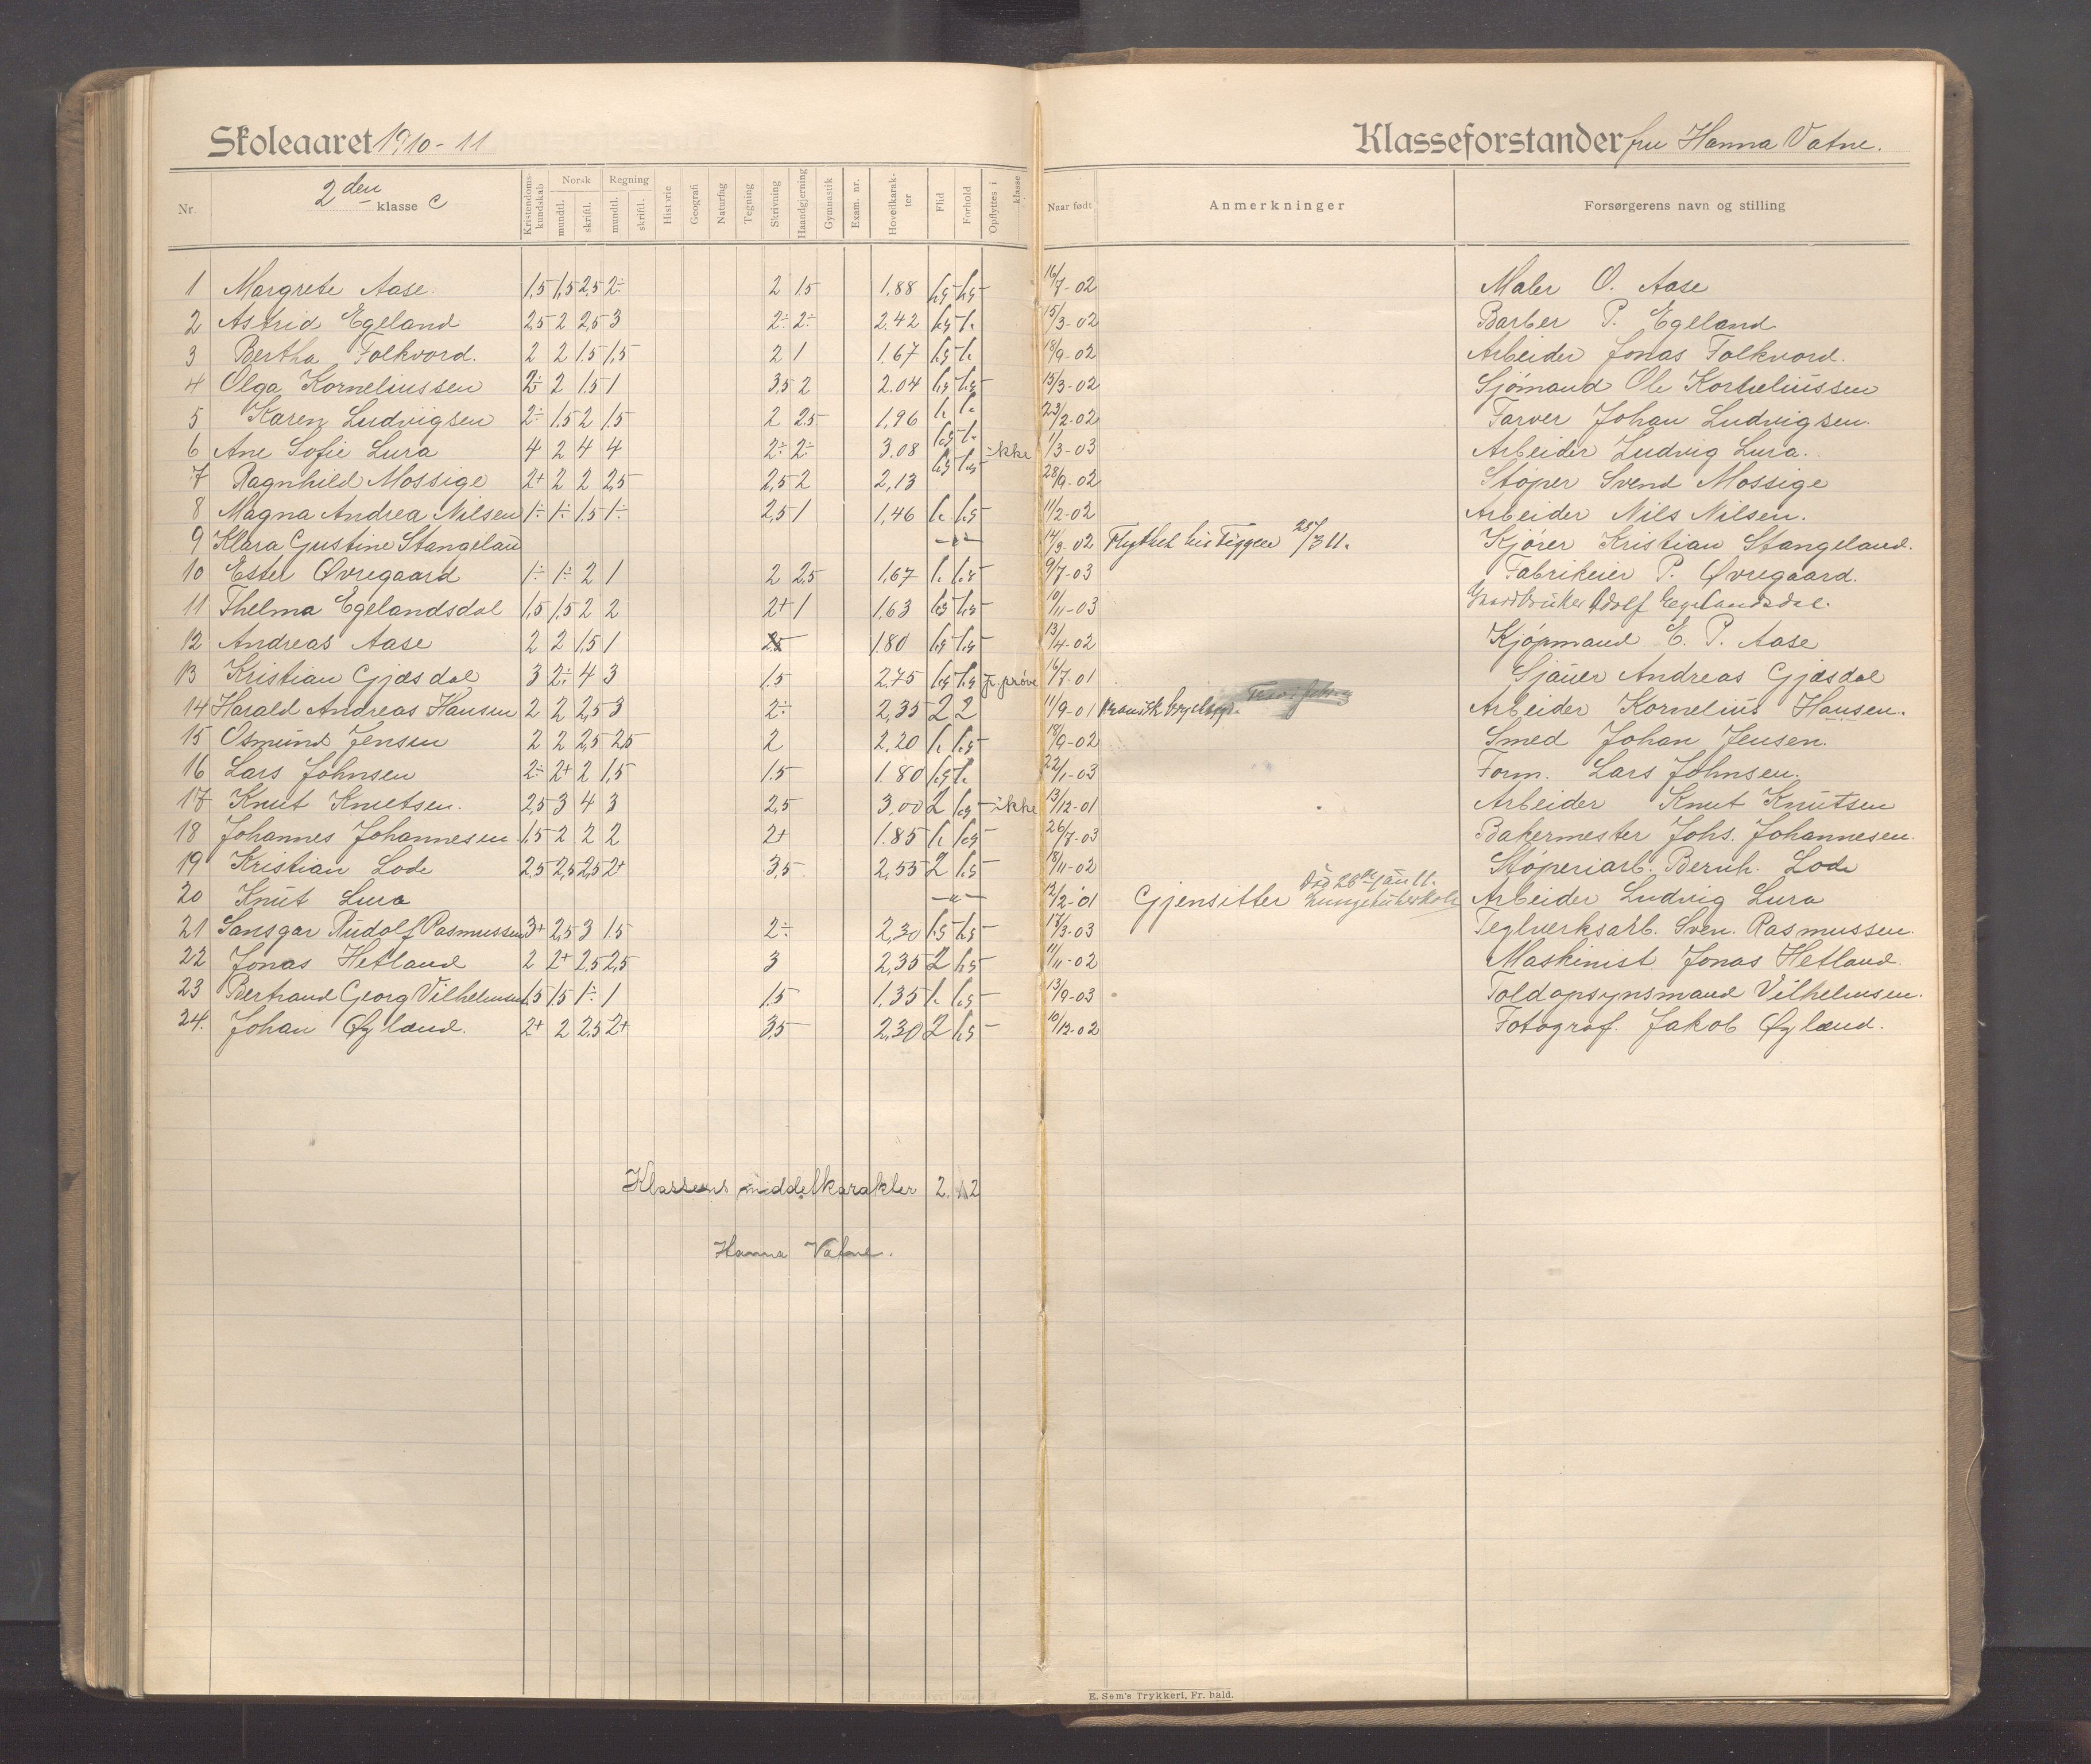 Skoleaaret 1910-11
Klasseforstander fru Hanna Vatne.
Nr.
2den klasse C
Kristendomskundskab
Norsk mundtl. skriftl.
Regning mundtl. skriftl.
Historie
Geografi
Naturfag
Tegning
Skrivning
Haandgjerning
Gymnastik
Exam. nr.
Hovedkarakter
Flid
Forhold
Opflyttes i klasse
Naar født
Anmerkninger
Forsørgerens navn og stilling
1 Margrete Aase. 1,5 1,5 2,5 2÷ 2 1,5 1,88 16/7-02 Maler O. Aase
2 Astrid Egeland 2,5 2 2,5 3 2÷ 2÷ 2.42 15/3-02 Barber P. Egeland
3 Bertha Folkvord. 2 2 1.5 1,5 2 1 1.67 18/9-02 Arbeider Jonas Folkvord.
4 Olga Korneliussen 2÷ 2 1.5 1 3,5 2 2.04 15/3-02 Sjömand Ole Korneliussen
5 Karen Ludvigsen 2÷ 1.5 2 1.5 2 2.5 1,96 23/2-02 Farver Johan Ludvigsen.
6 Ane Sofie Lura 4 2 4 4 2÷ 2÷ 3.08 ikke 1/3-03 Arbeider Ludvig Lura.
7 Ragnhild Mossige 2+ 2 2 2,5 2,5 2 2,13 28/9-02 Støper Svend Mossige
8 Magna Andrea Nilsen 1÷ 1÷ 1.5 1÷ 2,5 1 1,46 11/2-02 Arbeider Nils Nilsen.
9 Klara Gustine Stangelan 14/9-02 28/3 11. Kjører Kristian Stangeland.
10 Ester Øvregaard 1÷ 1÷ 2 1 2 2,5 1,67 9/7-03 Fabrikeier P. Øvregaard.
11 Thelma Egelandsdal 1,5 1,5 2 2 2+ 1 1,63 10/11-03 Gaardbruker Adolf Egelandsdal.
12 Andreas Aase 2 2 1,5 1 1.80 13/4-02 Kjøpmand E. P. Aase
13 Kristian Gjæsdal 3 2÷ 4 3 1.5 2.75 p. prøve 16/7-01 Sjauer Andreas Gjæsdal
14 Harald Andreas Hansen 2 2 2,5 3 2÷ 2,35 2 2 11/9-01 Arbeider Kornelius Hansen.
15 Osmund Jensen 2 2 2,5 2,5 2 2.20 18/9-02 Smed Johan Jensen.
16 Lars Johnsen 2÷ 2+ 2 1,5 1.5 1.80 22/1-03 Form. Lars Johnsen.
17 Knut Knutsen. 2,5 3 4 3 2,5 3,00 2 ikke 13/12-01 Arbeider Knut Knutsen
18 Johannes Johannesen 1,5 2 2 2 2+ 1.85 26/7-03 Bakermester Johs. Johannesen.
19 Kristian Lode 2,5 2,5 2,5 2+ 3,5 2,55 2 18/11-02 Støperiarb. Bernh. Lode
20 Knut Lura 12/2-01 Gjensitter Død 26de Jan 11. Arbeider Ludvig Lura
21 Sansgar Rudolf Rasmussen 3+ 2,5 3 1.5 2÷ 2,30 17/3-03 Teglverksarb. Sven. Rasmussen.
22 Jonas Hetland 2 2+ 2,5 2,5 3 2,35 2 11/11-02 Maskinist Jonas Hetland.
23 Bertrand Georg Vilhelmsen 1,5 1,5 1÷ 1 1.5 1.35 13/9-03 Toldopsynsmand Vilhelmsen.
24. Johan Øglænd. 2+ 2 2,5 2+ 3,5 2,30 2 10/12-02 Fotograf. Jakob Øglænd.
Klassens middelkarakter 2.12
Hanna Vatne.
E. Sem's Trykkeri, Fr. hald.